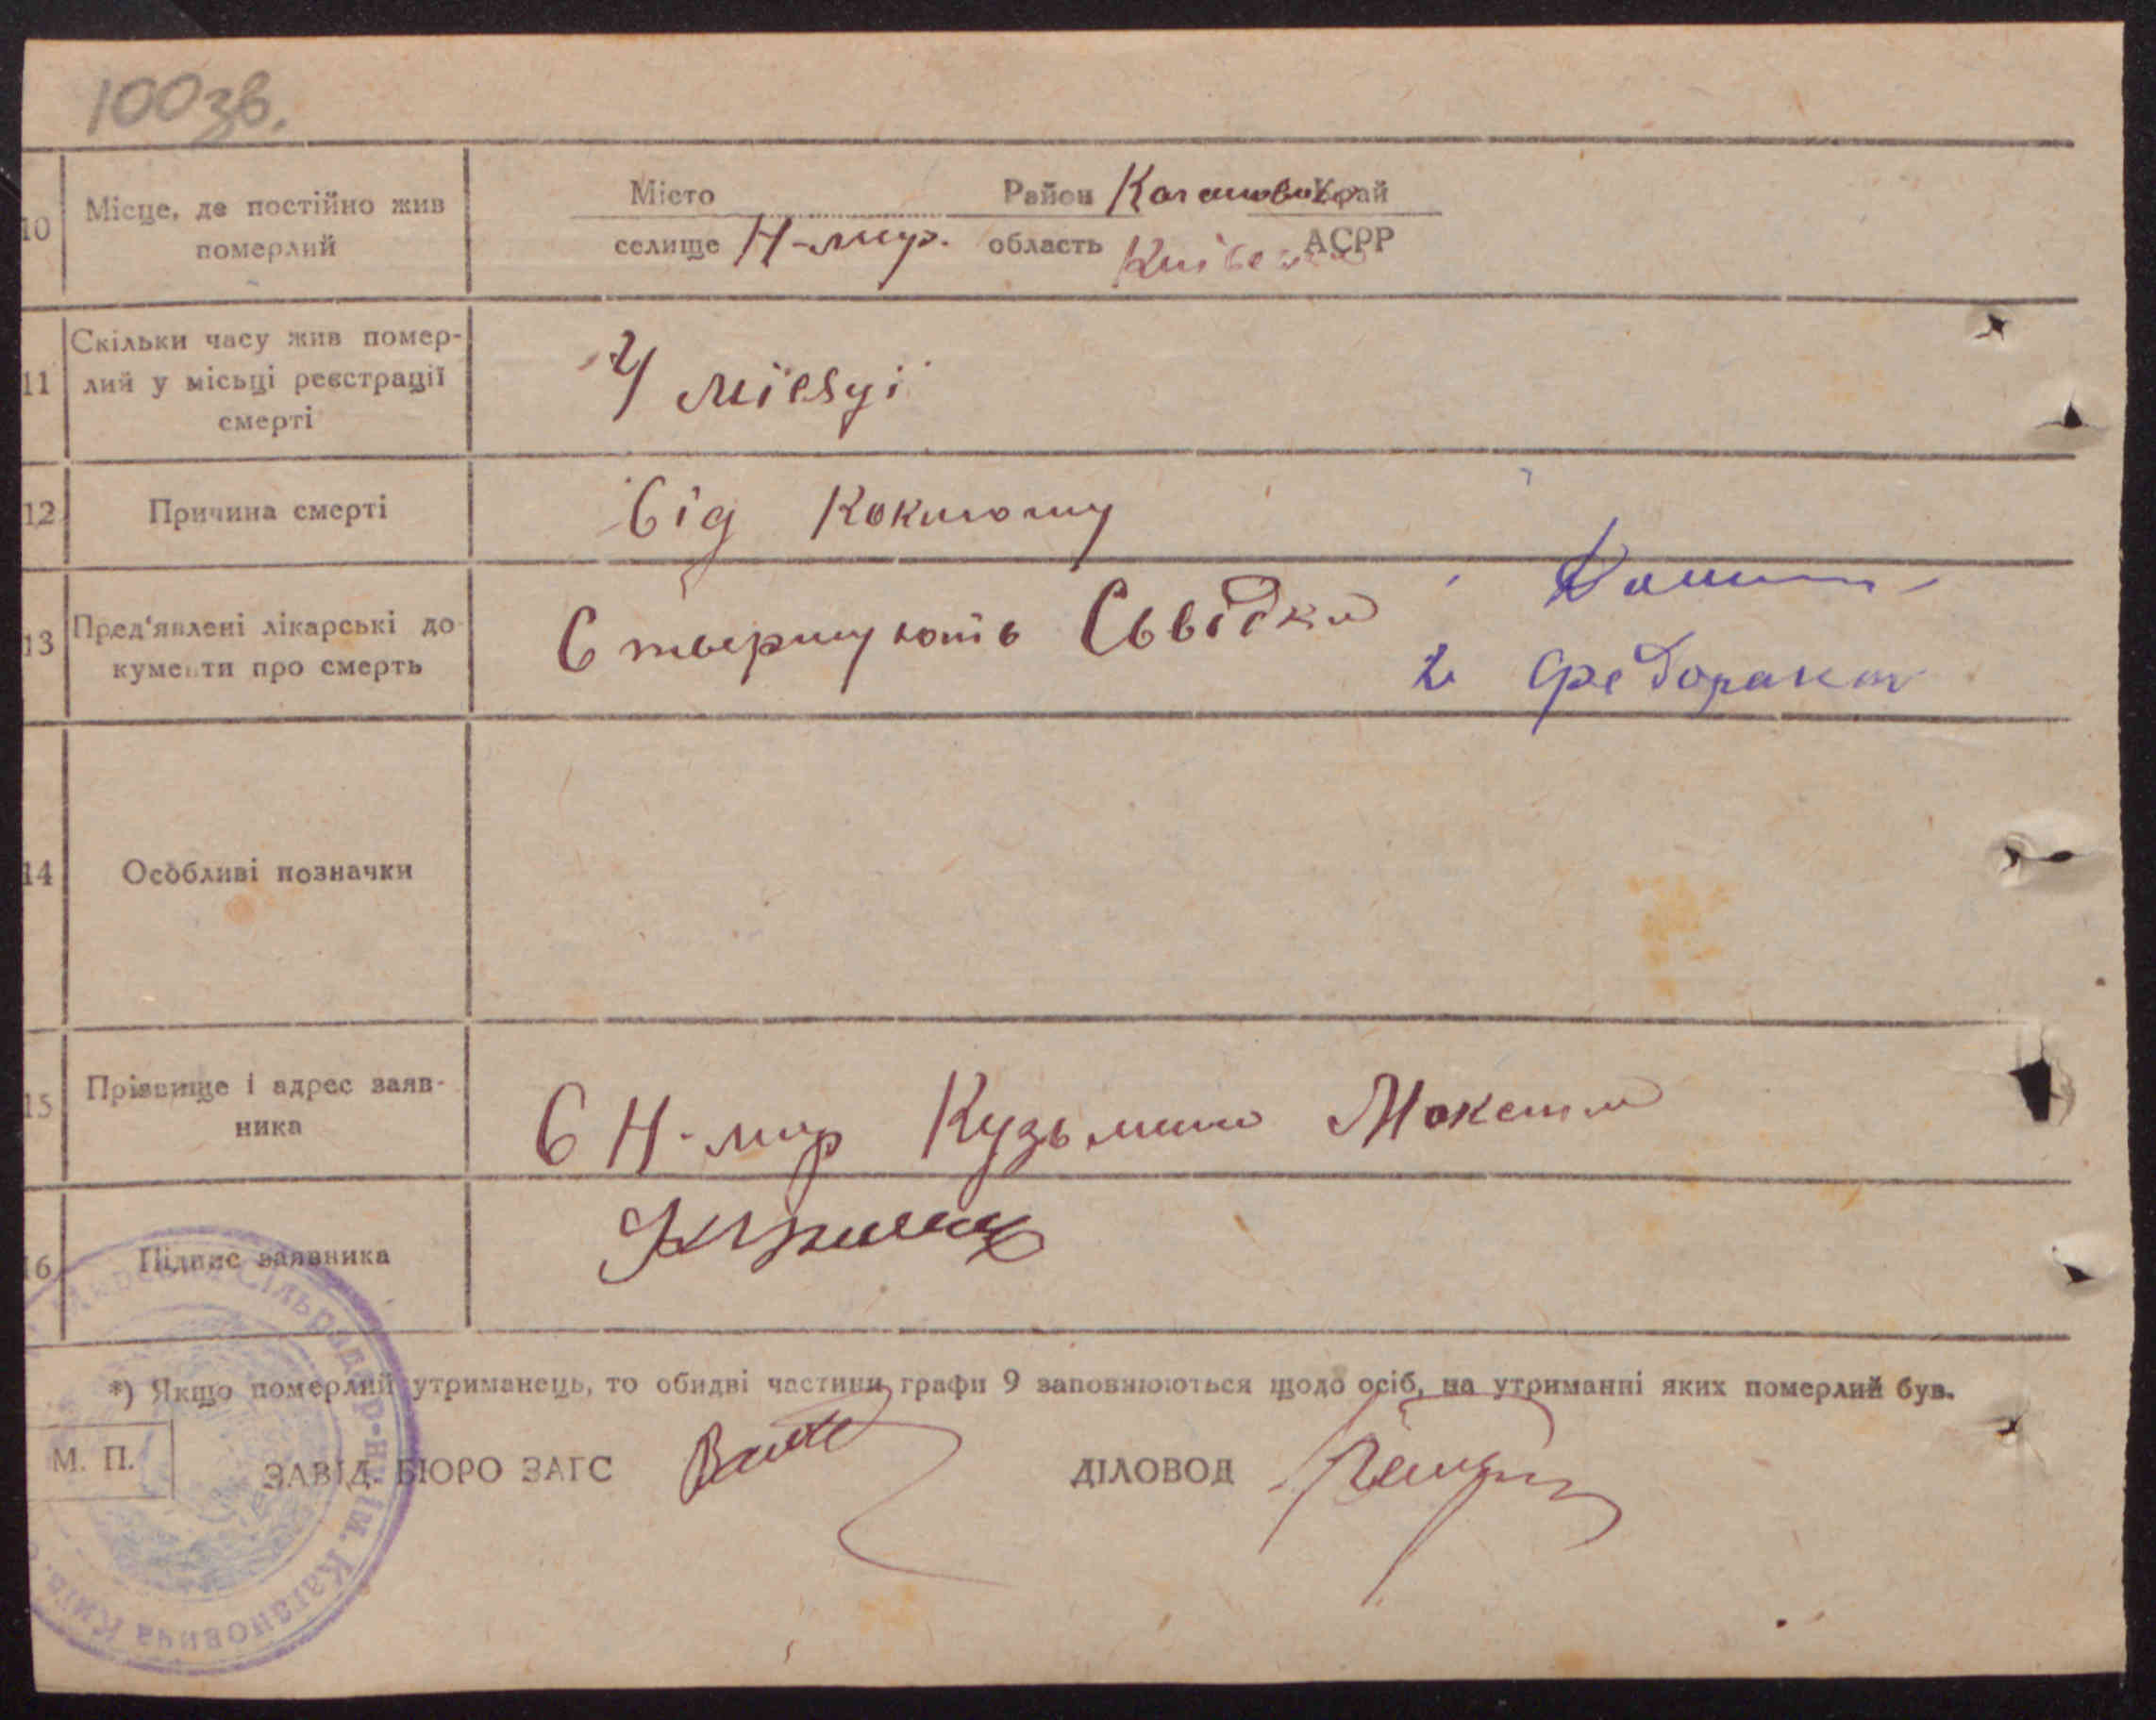 100зв.
10 Місце, де постійно жив померлий
Місто Район Каганович Край
селище Н-мир. область Київська АСРР
11 Скільки часу жив помер-
лий у місьці реєстрації
смерті
2 місяці
12 Причина смерті
від коклюшу
13 Пред'явлені лікарські до-
кументи про смерть
Ствержують Свідки
2 Федоренко
14 Особливі позначки
15 Прізвище і адрес заяв-
ника
С Н-мир Кузьменко Максим
16 Підпис заявника
*) Якщо померлий утриманець, то обидві частини графи 9 заповнюються щодо осіб, на утриманні яких померлий був.
М. П.
ЗАВІД. БЮРО ЗАГС
ДІЛОВОД
Сільрада р-ну ім. Кагановича Київ